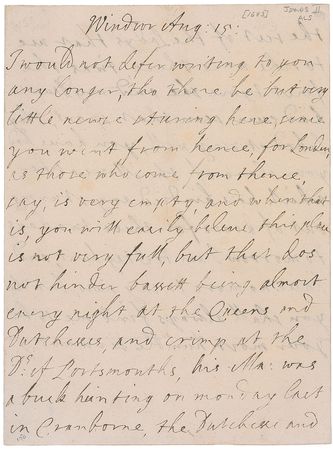 James II
ALS
[1683]
Windsor Aug: 15.
I would not defer writing to you
any longer, tho there be but very
little newse sturing here since
you went from hence, for London
as those who come from thence
say, is very empty, and when that
is, you will easily beleve this place
is not very full, but that dos
not hinder bassett being almost
every night at the Queens, and
Dutchesses, and crimp at the
Ds. of Portsmouths, his Ma: was
a buck hunting on monday last
in Cranborne, the Dutchesse and